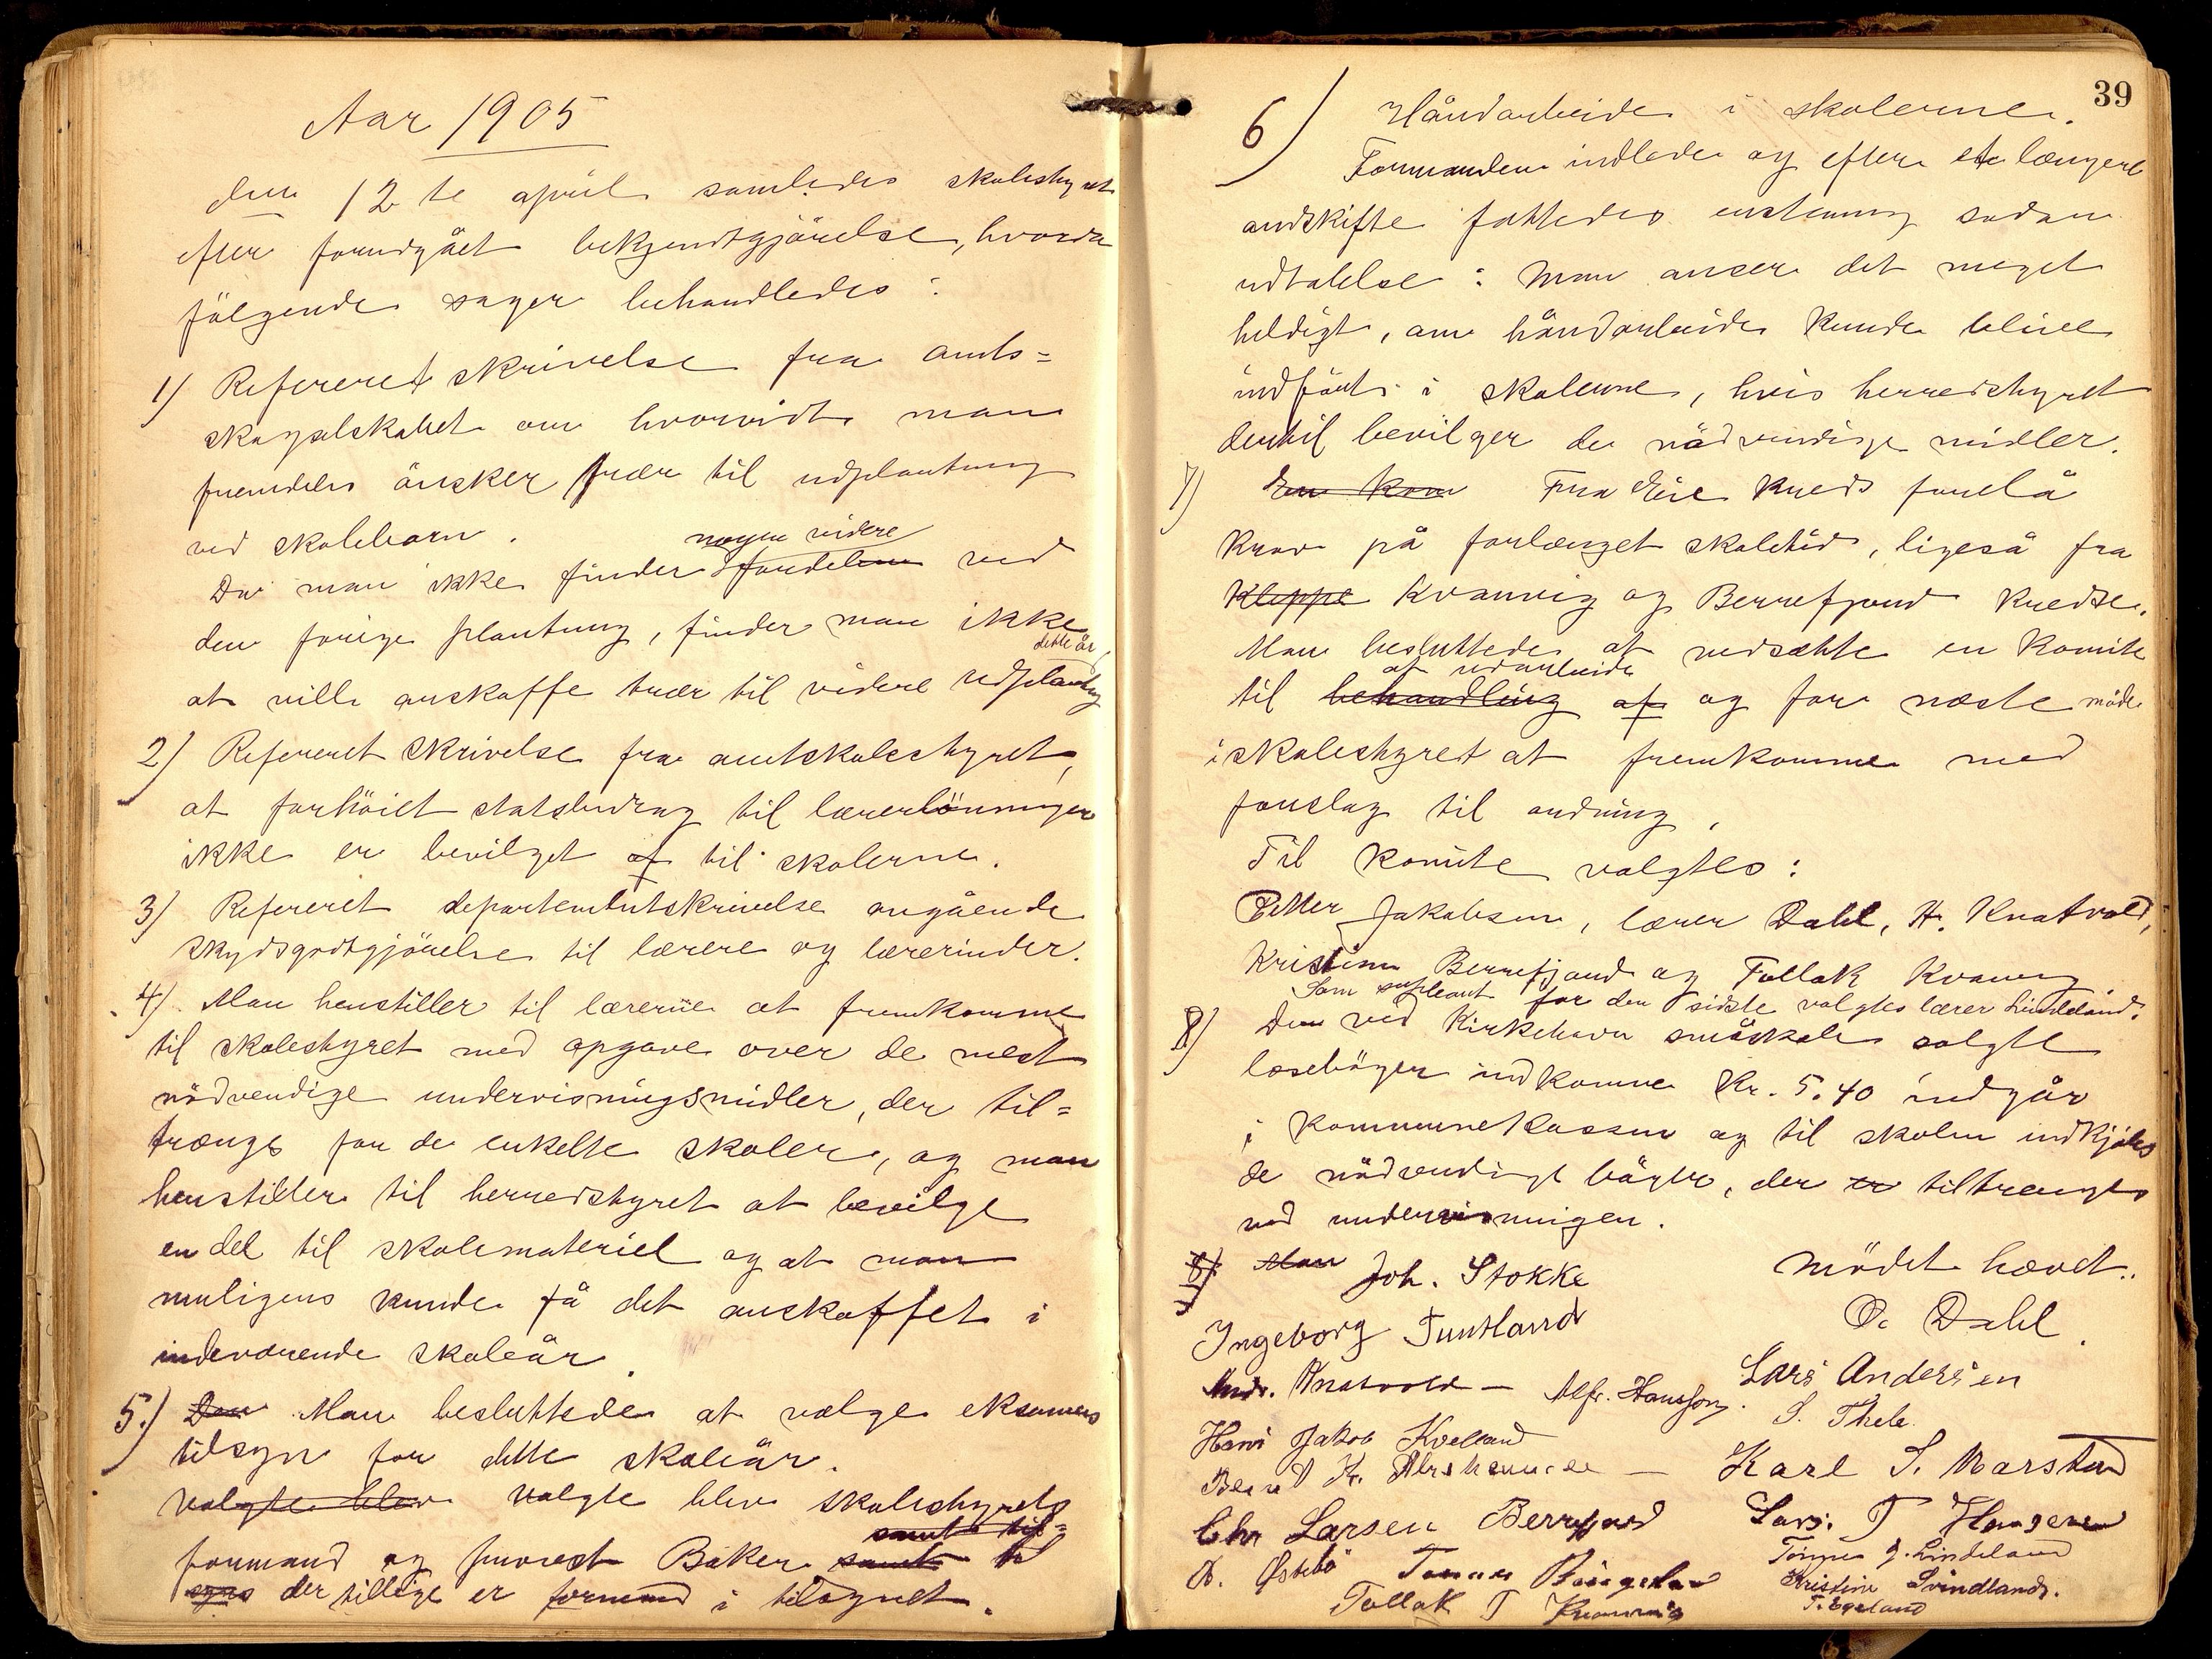 Aar 1905
den 12te april samledes skolestyret
efter forudgået bekjendtgjörelse, hvorda
fölgende sager behandledes:
1) Refereret skrivelse fra amts=
skogselskabet om hvorvidt man
fremdeles önsker trær til udplantning
ved skolebarn.
nogen videre
Da man ikke finder fordelene ved
den forige plantning, finder man ikke
dette år
at ville anskaffe trær til videre udplantng
2) Refereret skrivelse fra amtskolestyret,
at forhöiet statsbidrag til lærerlönninger
ikke er bevilget af til skolerne.
3) Refereret departementskrivelse angående
skydsgodtgjörelse til lærere og lærerinder.
4) Man henstiller til lærerne at fremkomme
til skolestyret med opgave over de mest
nödvendige undervisningsmidler, der til=
trængs for de enkelte skoler, og man
henstiller til herredstyret at bevilge
en del til skolemateriel og at man
muligens kunde få det anskaffet i
indeværende skoleår.
5.) Den Man besluttede at vælge eksamens
tilsyn for dette skoleår.
Valgte blev Valgte blev skolestyrets
samt til=
formand og provst Baker samt til
syns der tillige er formand i tilsynet.
39
6) Håndarbeide i skolerne.
Formanden indlede og efter et længere
ordskifte fattedes enstemmig sådan
udtalelse: Man anser det meget
heldigt, om håndarbeide kunde blive
indfört i skolerne, hvis herredstyret
dertil bevilger de nödvendige midler.
7) En kom Fra Eie kreds forelå
krav på forlænget skoletid, ligeså fra
Kleppe Kvanvig og Berrefjord kredse.
Man besluttede at nedsætte en komite
at udarbeide
til behandling af og for næste möde
i skolestyret at fremkomme med
forslag til ordning,
Til komite valgtes:
Petter Jakobsen, lærer Dahl, H. Knatvold,
Kristian Berrefjord og Tollak Kvanvig
Som supleant for den sidste valgtes lærer Lindeland.
8) Den ved Kirkehavn småskole solgte
læseböger indkomne Kr. 5.40 indgår
i kommunekassen og til skolen indkjöbes
de nödvendige böger, der er tiltrenges
ved undervisningen.
8) Man Joh. Stokke mödet hævet.
Ingeborg Tuntland O. Dahl.
Andr. Knatvold — Alfr. Hansson. Lars Andersen
Hans Jakob Kvelland S. Thele
Bernt K. Abrahamsen — Karl S. Marstad
Chr Larsen Berrefjord Lars. T Haugene
A. Östebö Tönnes g. Lindeland
Kristine Svindland.
Tollak T Kvanvig T. Egeland